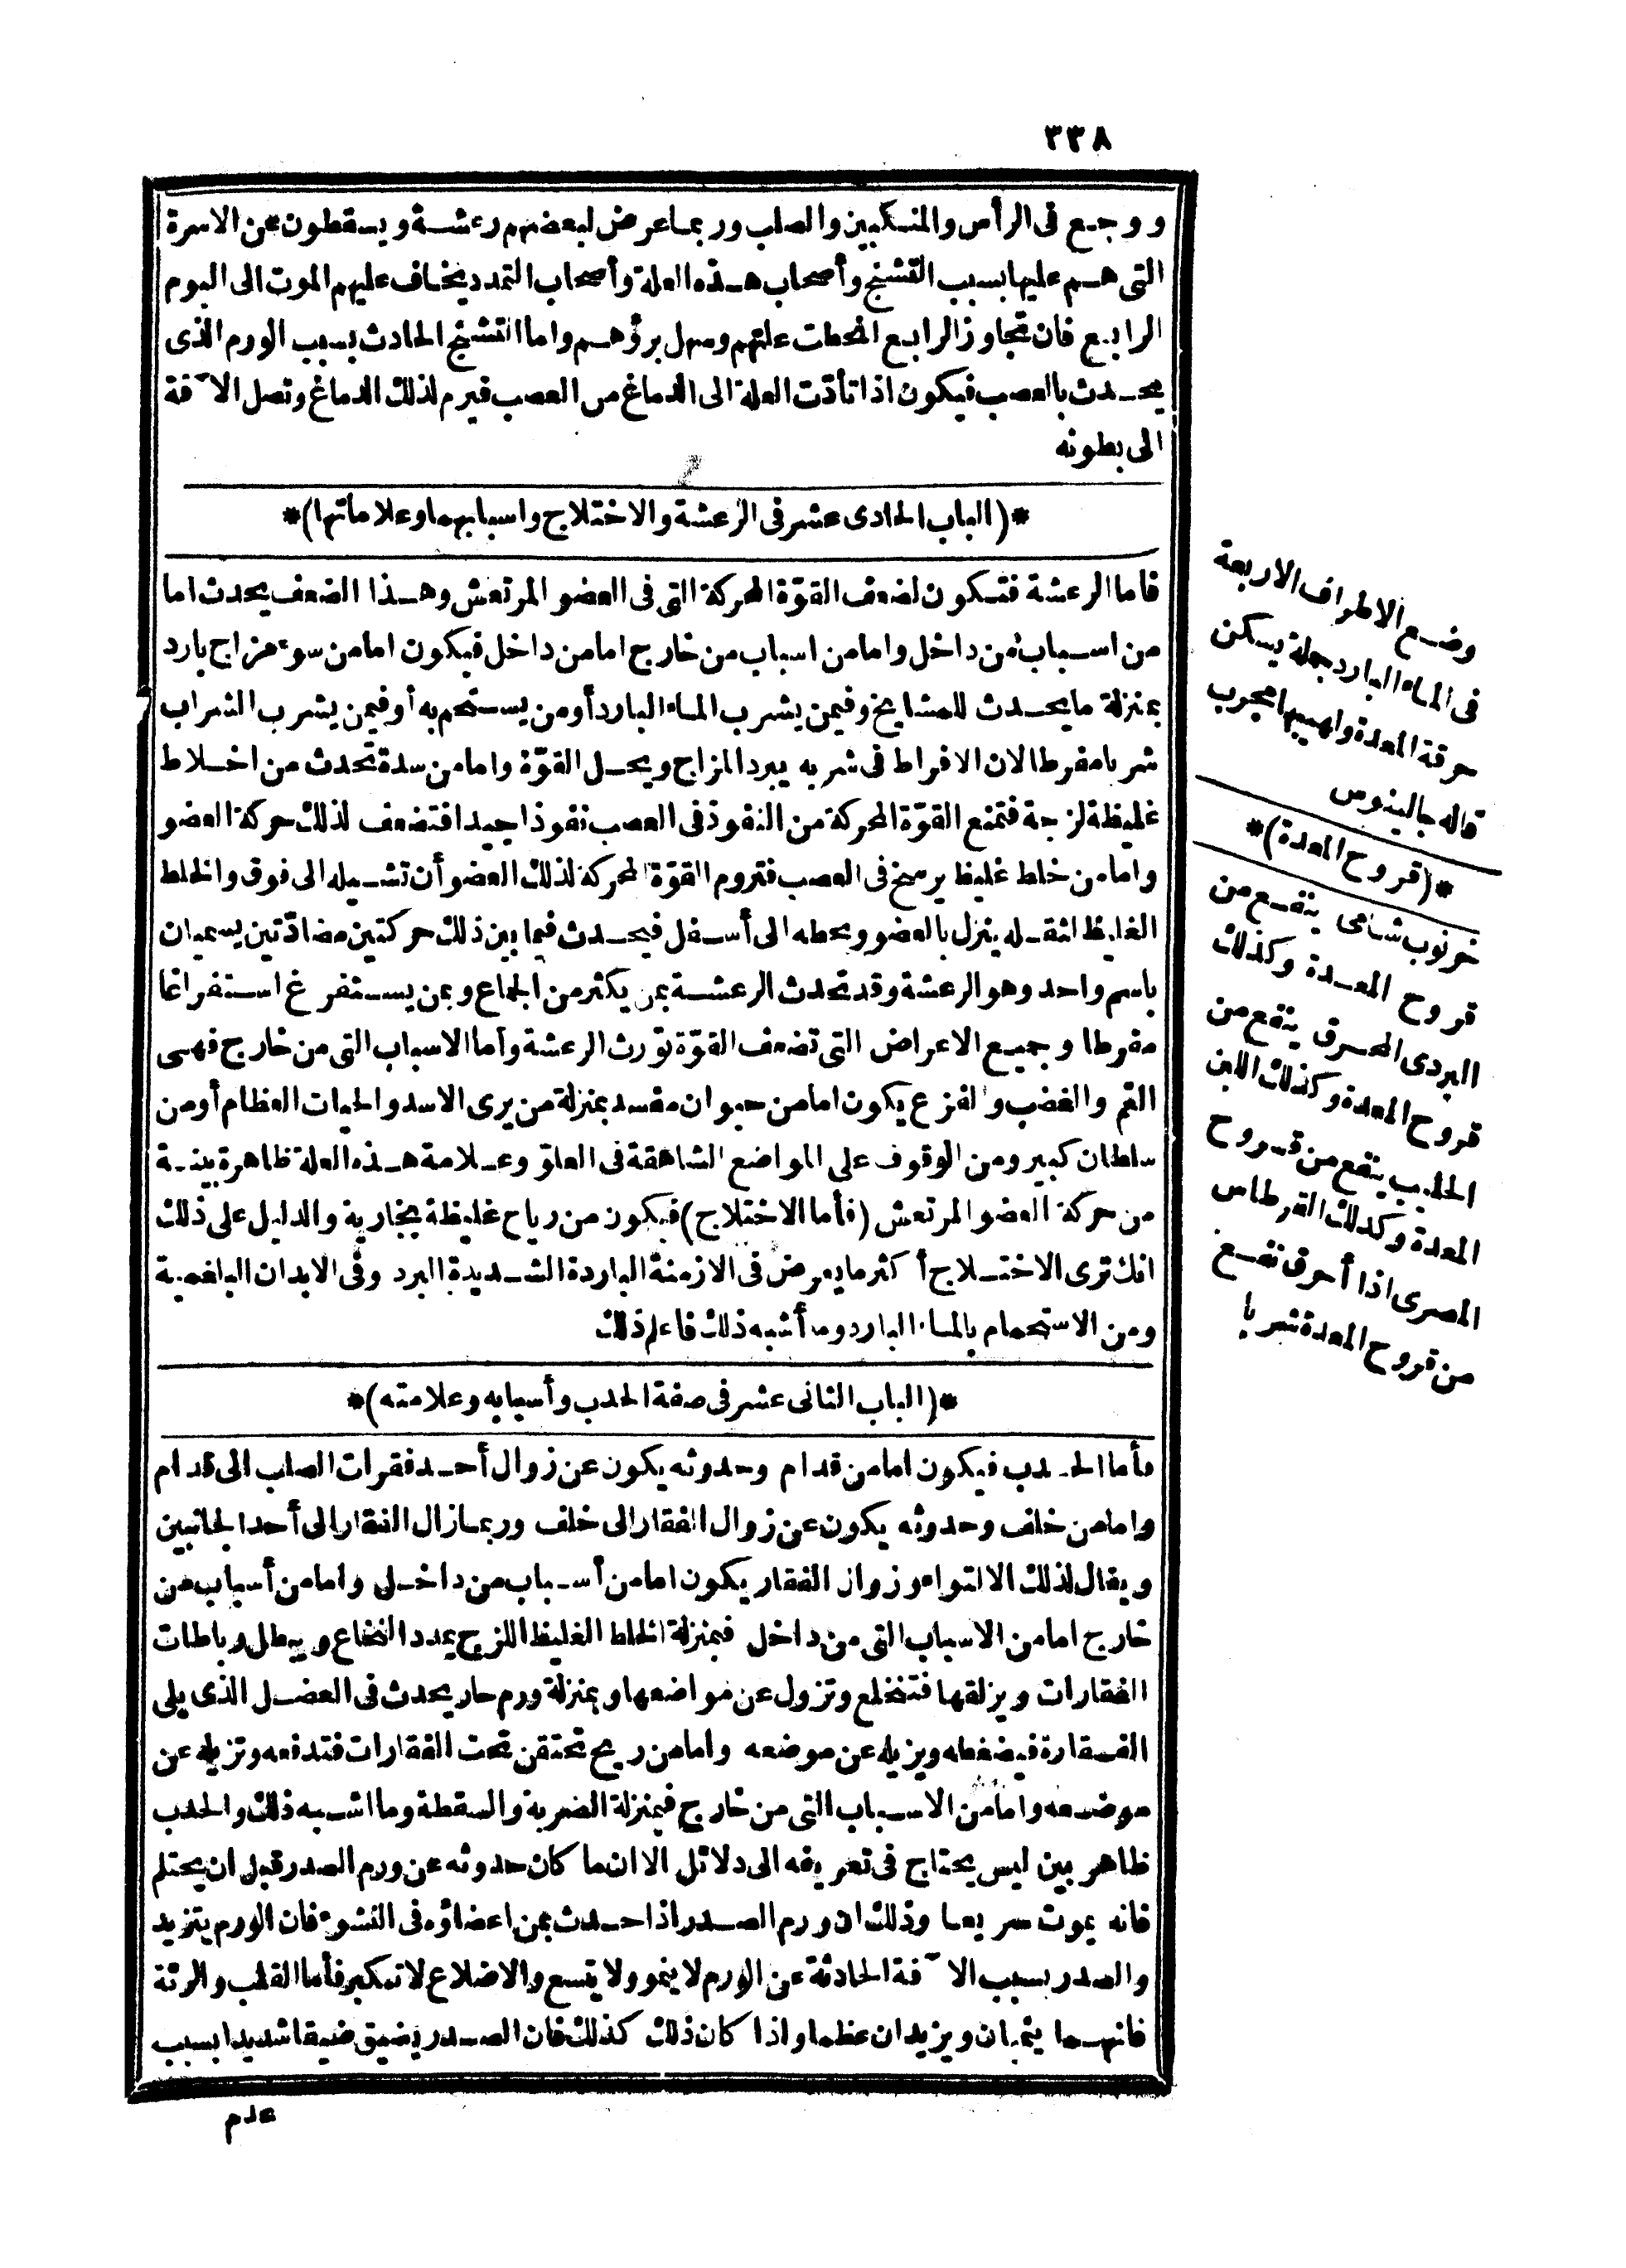 ٣٣٨
ووجع فى الرأس والمنكبين والصلب وربما عرض لبعضهم رعشة ويسقطون عن الاسرة
التى هم عليها بسبب التشنج وأصحاب هذه العلة وأصحاب التمدد يخاف عليهم الموت الى اليوم
الرابع فان تجاوز الرابع انحطت علتهم وسهل برؤهم واما التشنج الحادث بسبب الورم الذى
يحدث بالعصب فيكون اذا تأدّت العلة الى الدماغ من العصب فيرم لذلك الدماغ وتصل الآفة
الى بطونه
*(الباب الحادى عشر فى الرعشة والاختلاج واسبابهما وعلاماتها)*
فاما الرعشة فتكون لضعف القوّة المحركة التى فى العضو المرتعش وهذا الضعف يحدث اما
من اسباب من داخل واما من اسباب من خارج اما من داخل فيكون اما من سوء مزاج بارد
بمنزلة ما يحدث للمشايخ وفيمن يشرب الماء البارد أو من يستحم به أو فيمن يشرب الشراب
شربا مفرطا لان الافراط فى شربه يبرد المزاج ويحل القوّة واما من سدة تحدث من اخلاط
غليظة لزجة فتمنع القوّة المحركة من النفوذ فى العصب نفوذا جيدا فتضعف لذلك حركة العضو
واما من خلط غليظ يرسخ فى العصب فتروم القوّة المحركة لذلك العضو أن تشيله الى فوق والخلط
الغليظ لثقله ينزل بالعضو ويحطه الى أسفل فيحدث فيما بين ذلك حركتين مضادّتين يسميان
باسم واحد وهو الرعشة وقد تحدث الرعشة بمن يكثر من الجماع وبمن يستفرغ استفراغا
مفرطا وجميع الاعراض التى تضعف القوّة تورث الرعشة وأما الاسباب التى من خارج فهى
الغم والغضب والفزع يكون اما من حيوان مفسد بمنزلة من يرى الاسد والحيات العظام أو من
سلطان كبير ومن الوقوف على المواضع الشاهقة فى العلوّ وعلامة هذه العلة ظاهرة بينة
من حركة العضو المرتعش (فأما الاختلاج) فيكون من رياح غليظة بخارية والدليل على ذلك
انك ترى الاختلاج أكثر ما يعرض فى الازمنة الباردة الشديدة البرد وفى الابدان البلغمية
ومن الاستحمام بالماء البارد وما أشبه ذلك فاعلم ذلك
*(الباب الثانى عشر فى صفة الحدب وأسبابه وعلامته)*
فأما الحدب فيكون اما من قدام وحدوثه يكون عن زوال أحد فقرات الصلب الى قدام
واما من خلف وحدوثه يكون عن زوال الفقار الى خلف وربما زال الفقار الى أحد الجانبين
ويقال لذلك الالتواء وزوال الفقار يكون اما من أسباب من داخل واما من أسباب من
خارج اما من الاسباب التى من داخل فبمنزلة الخلط الغليظ اللزج يمدد النخاع ويبطل رباطات
الفقارات ويزلقها فتنخلع وتزول عن مواضعها وبمنزلة ورم حار يحدث فى العضل الذى يلى
الفقارة فيضغطه ويزيله عن موضعه واما من ريح تحتقن تحت الفقارات فتدفعه وتزيله عن
موضعه واما من الاسباب التى من خارج فبمنزلة الضربة والسقطة وما اشبه ذلك والحدب
ظاهر بين ليس يحتاج فى تعريفه الى دلائل الا ان ما كان حدوثه عن ورم الصدر قبل ان يحتلم
فانه يموت سريعا وذلك ان ورم الصدر اذا حدث بمن اعضاؤه فى النشوء فان الورم يتزيد
والصدر بسبب الآفة الحادثة عن الورم لا ينمو ولا يتسع والاضلاع لا تكبر فأما القلب والرئة
فانهما ينميان ويزيدان عظما واذا كان ذلك كذلك فان الصدر يضيق ضيقا شديدا بسبب
عدم
وضع الاطراف الاربعة
فى الماء البارد جملة يسكن
حرقة المعدة ولهيبها مجرب
قاله جالينوس
*(قروح المعدة)*
خرنوب شامى ينفع من
قروح المعدة وكذلك
البردى المحرق ينفع من
قروح المعدة وكذلك اللبن
الحليب ينفع من قروح
المعدة وكذلك القرطاس
المصرى اذا أحرق نفع
من قروح المعدة شربا